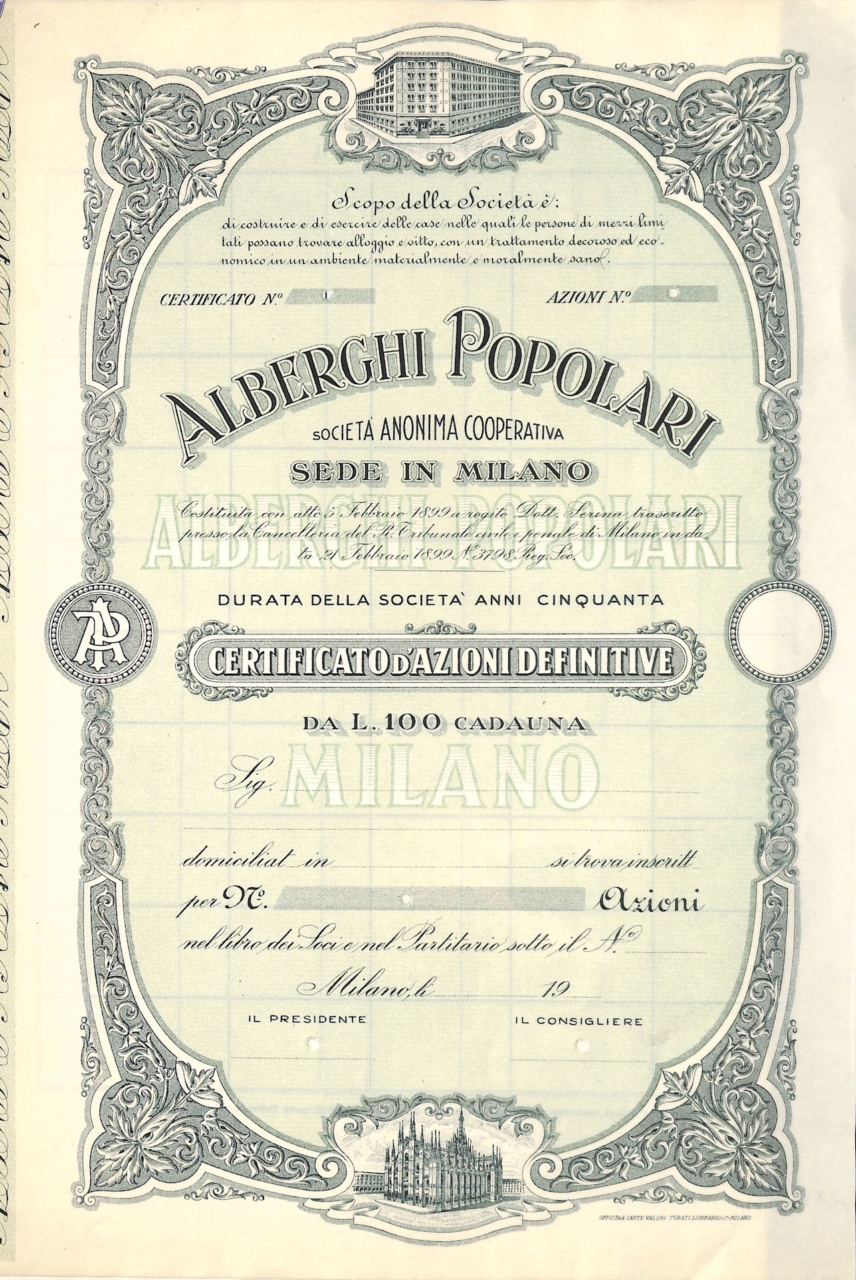 Scopo della Società è:
di costruire e di esercire delle case nelle quali le persone di mezzi limi
tati possano trovare alloggio e vitto, con un trattamento decoroso ed eco-
nomico in un ambiente materialmente e moralmente sano.
CERTIFICATO N.º
AZIONI N.º
ALBERGHI POPOLARI
SOCIETA' ANONIMA COOPERATIVA
SEDE IN MILANO
ALBERGHI POPOLARI
Costituita con atto 5 Febbraio 1899 a rogito Dott. Serina, trascritto
presso la Cancelleria del R. Tribunale civile e penale di Milano in da-
ta 21 Febbraio 1899 Nº 3798 Reg. Soc.
DURATA DELLA SOCIETA' ANNI CINQUANTA
AP
CERTIFICATO D'AZIONI DEFINITIVE
DA L. 100 CADAUNA
MILANO
Sig.
domiciliat in si trova inscritt
per Nº. Azioni
nel libro dei Soci e nel Partitario sotto il Nº
Milano, li 19
IL PRESIDENTE IL CONSIGLIERE
OFFICINA CARTE VALORI - TURATI LOMBARDI & C. - MILANO